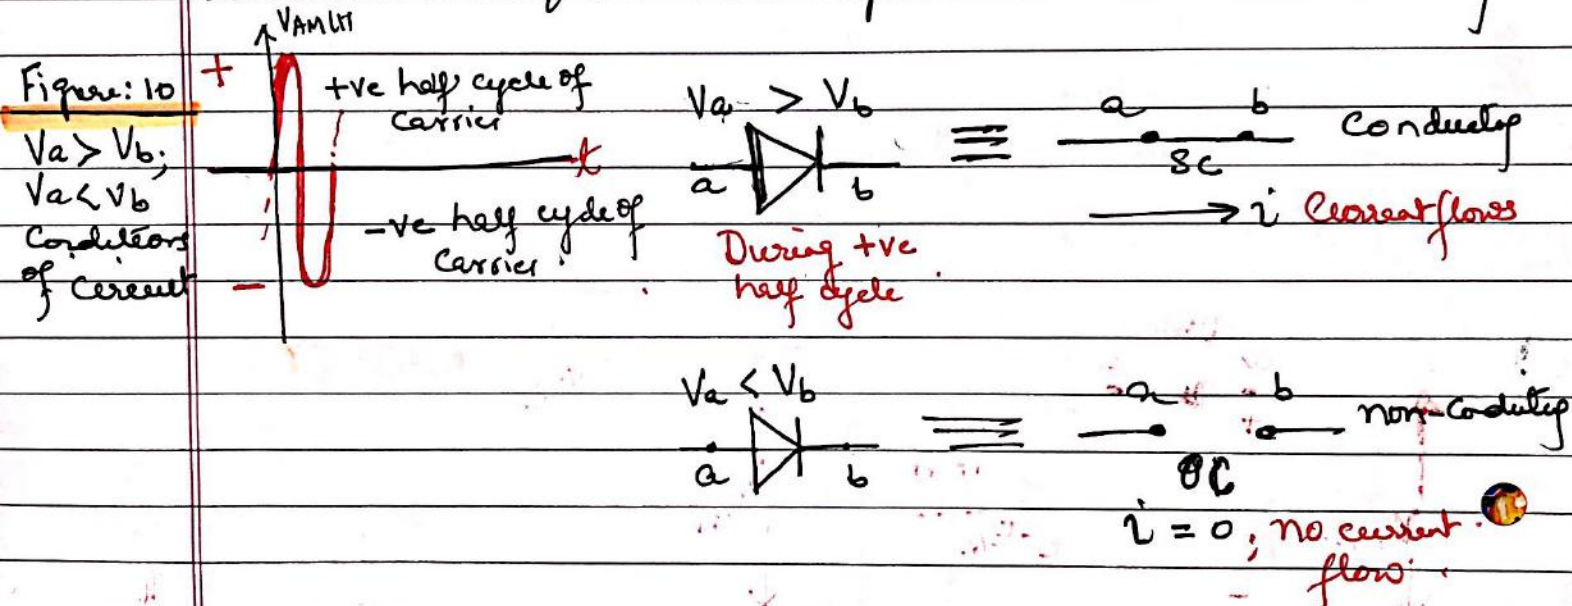 Figure: 10
Va > Vb;
Va < Vb
Conditions
of circuit
+
VAM(t)
+ve half cycle of
carrier
t
-ve half cycle of
carrier.
-
Va > Vb
a
b
During +ve
half cycle
≡
a b
SC
Conducting
i Current flows
Va < Vb
a
b
≡
a b
OC
non-conducting
i = 0, no current
flow.